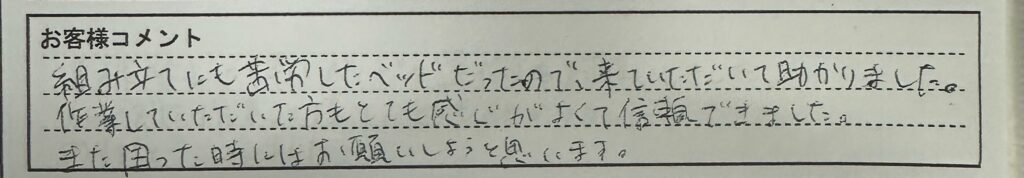 お客様コメント
組み立てにも苦労したベッドだったので、来ていただいて助かりました。
作業していただいた方もとても感じがよくて信頼できました。
また困った時にはお願いしようと思います。